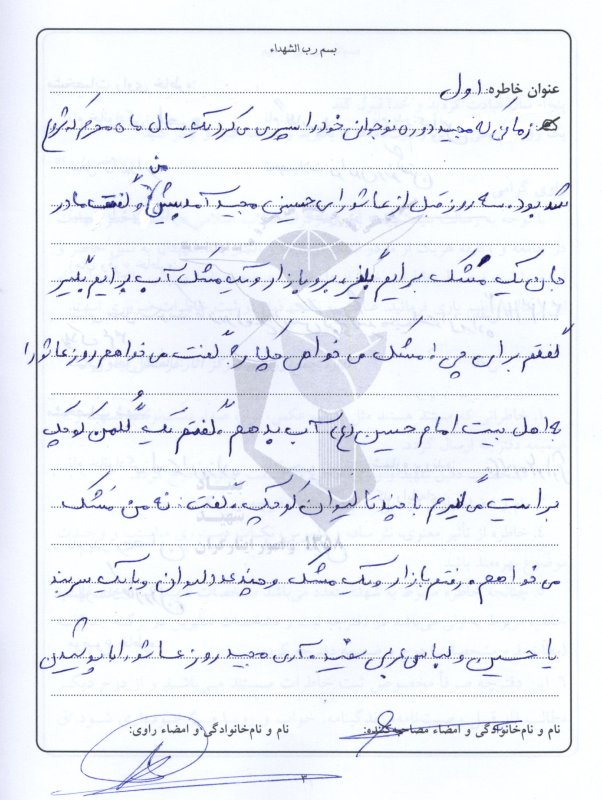 بسم رب الشهداء
عنوان خاطره: اول
زمانی که مجید دوره نوجوانی خود را سپری می کرد یک سال ماه محرم که شروع
شده بود. سه روز قبل از عاشورای حسینی مجید آمد پیش من و گفت مادر
جان یک مشک برایم بگیر، برو بازار و یک مشک آب برایم بگیر
گفتم برای چی؟ مشک می خواهی چکار؟ گفت می خواهم روز عاشورا
به اهل بیت امام حسین (ع) آب بدهم گفتم یک کلمن کوچک
برایت می گیرم با چند تا لیوان کوچک، گفت: نه من مشک
می خواهم، رفتم بازار و یک مشک و چند عدد لیوان و با یک سربند
یا حسین و لباس عربی سفید، آری مجید روز عاشورا با پوشیدن
نام و نام‌خانوادگی و امضاء مصاحبه‌کننده: نام و نام‌خانوادگی و امضاء راوی:
۳